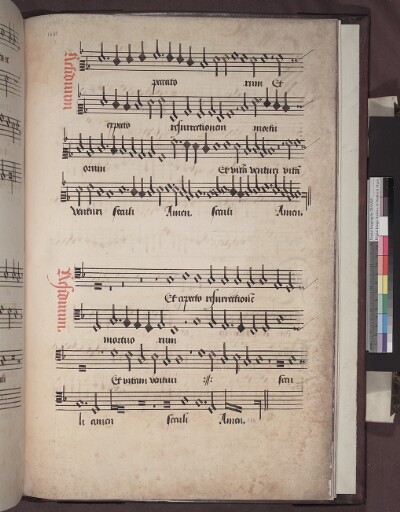 Residuum
peccato rum Et
expecto resurrectionem mortu
orum Et vitā venturi vitā
venturi seculi Amen. seculi Amen.
Residuum.
Et expecto resurrectionē
mortuo rum
Et vitam venturi :ij: secu
li amen seculi Amen.